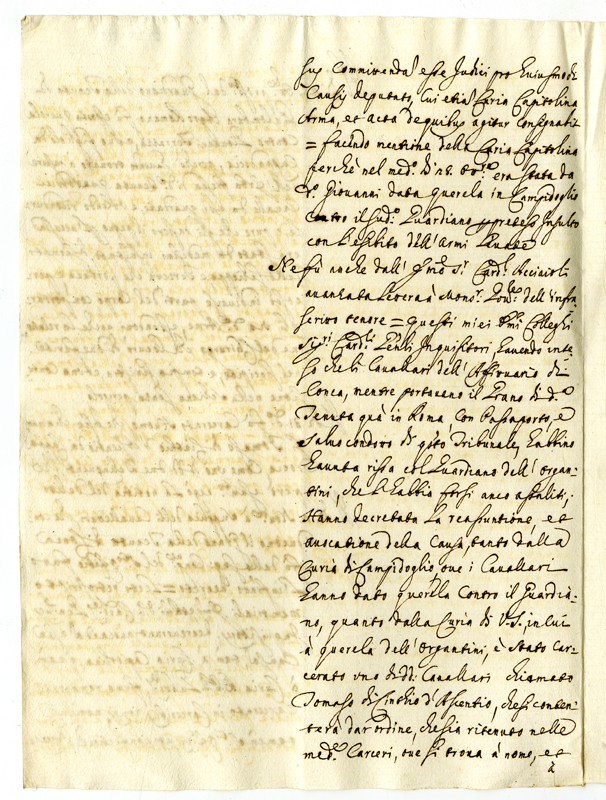 sup. Commirenda esse Judici pro huiusmodi
Causis deputato, cui etia Curia Capitolina
Arma, et acta de quibus agitur consignabit
= facendo mentione della Curia Capitolina
perche nel med.º di era stata da
Giovanni data querela in Campidoglio
contro il sud.º Guardiano preteso insulto
con l'esibito dell'Armi
Ne fù anche dall' Sr. Card. Acciaioli
avanzata lettera à Mons.r Gov.re dell' infra
scritto tenore = questi miei Colleghi
Sig.ri Card.li Gen.li Inquisitori, havendo inte-
so che li Cavallari dell' Affittuario di
Conca, mentre portavano il Grano di d.ª
Tenuta quà in Roma con Passaporto, e
Salvo condotto di q.sto Tribunale, habbino
havuta rissa col Guardiano dell' Organ-
tini, che li habbia forsi anco assaliti,
Hanno decretata la reassuntione, et
avocatione della Causa, tanto dalla
Curia di Campidoglio, ove i Cavallari
hanno dato querela contro il Guardia-
no, quanto dalla Curia di V.S., in cui
à querela dell' Organtini, è stato Car-
cerato uno di dd. Cavallari chiamato
Tomaso di Cintio d'Ascentio, che si conten-
terà dar ordine, che sia ritenuto nelle
med.e Carceri, ove si trova à nome, et
à